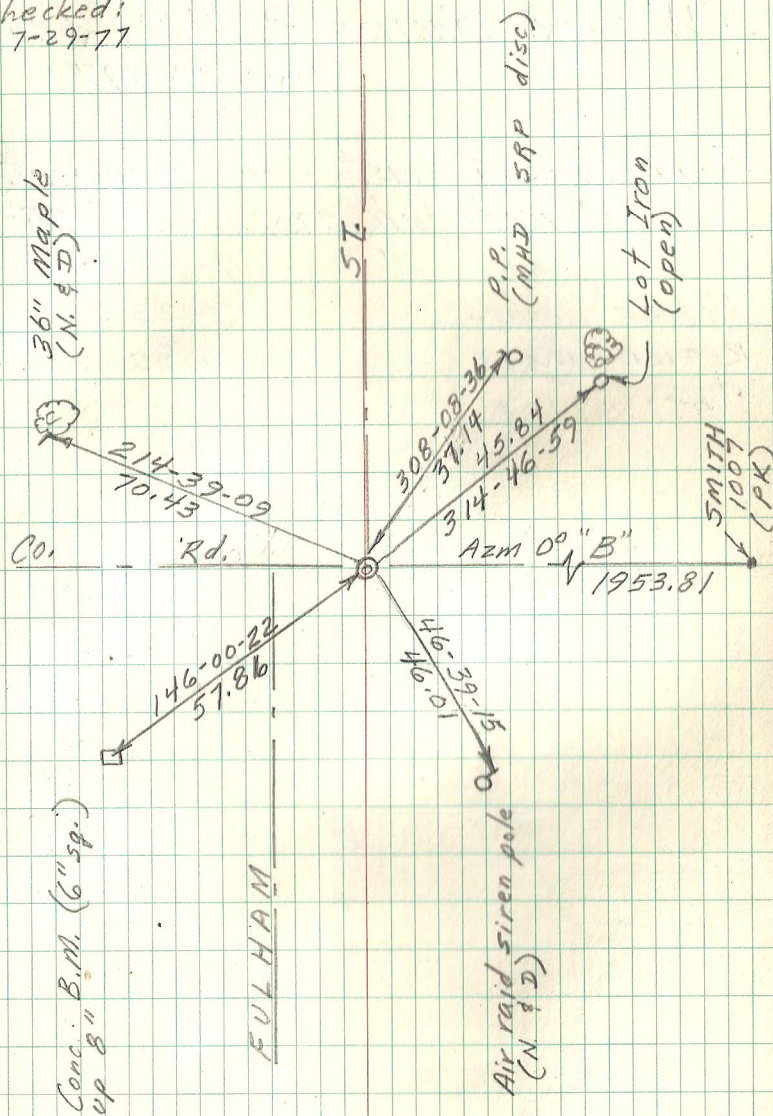 hecked:
7-29-77
36" Maple
(N. & D)
ST.
P.P.
(MHD SRP disc)
Lot Iron
(open)
214-39-09
70.43
308-08-36
37.14
45.84
314-46-59
SMITH
1007
(PK)
Co. Rd.
Azm 0° "B"
1953.81
146-00-22
57.86
46-39-15
46.01
Conc. B.M. (6" sq.)
up 8"
FULHAM
Air raid siren pole
(N. & D)